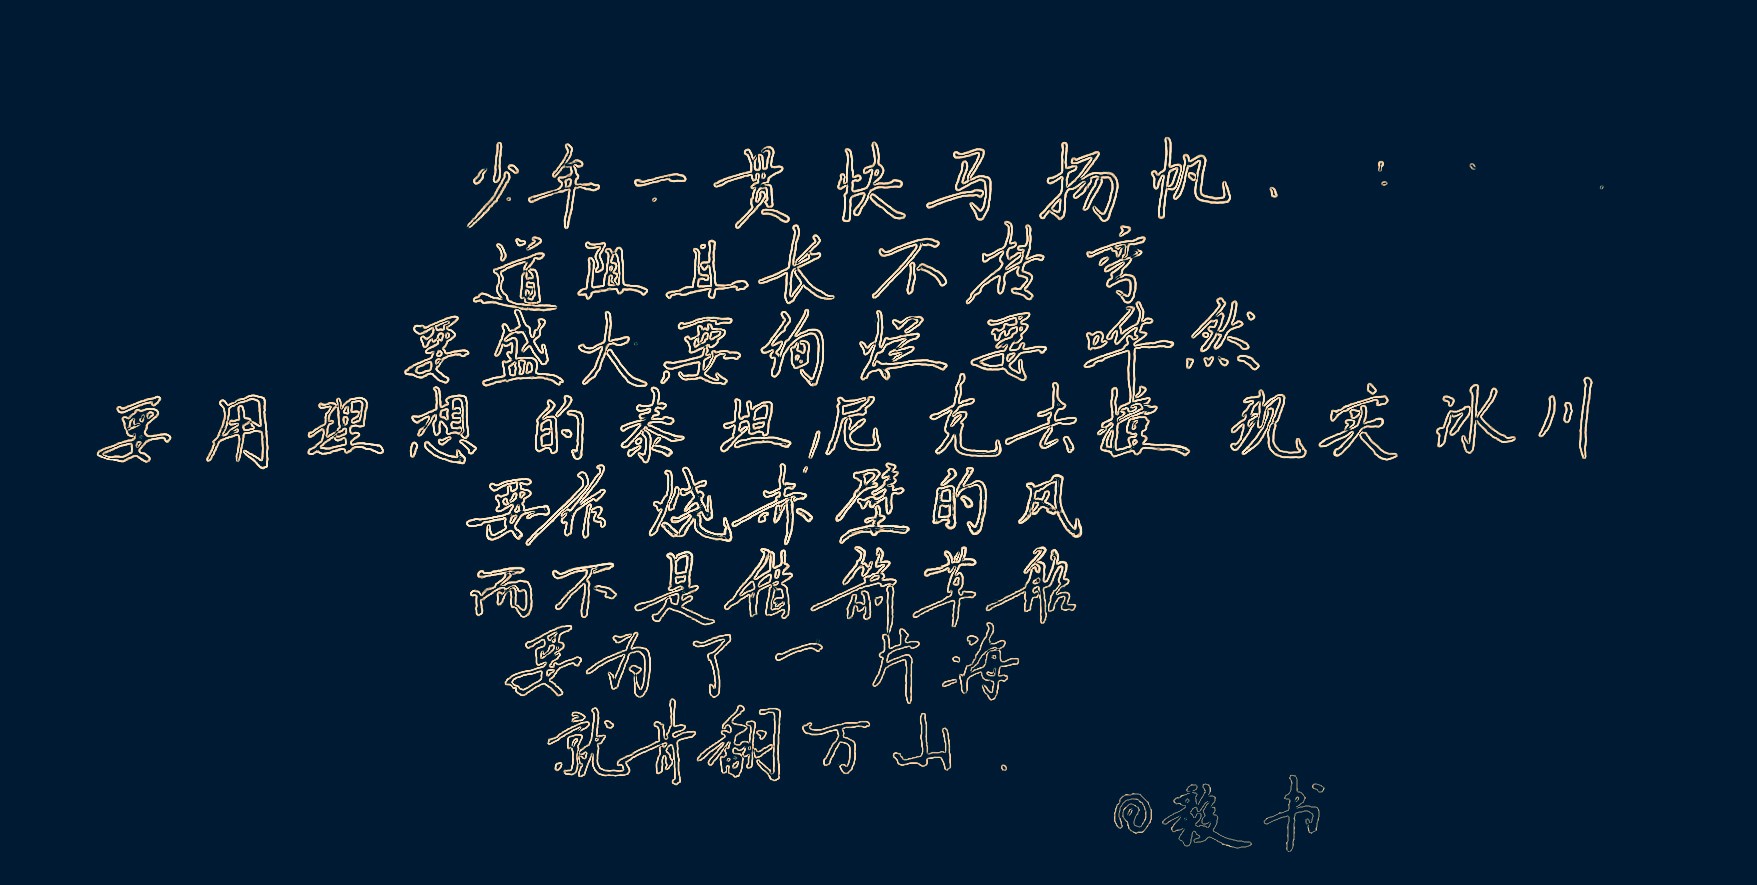 少年一贯快马扬帆、
道阻且长不转弯
要盛大要绚烂要哗然
要用理想的泰坦尼克去撞现实冰川
要作烧赤壁的风
而不是借箭草船
要为了一片海
就肯翻万山.
@毅书